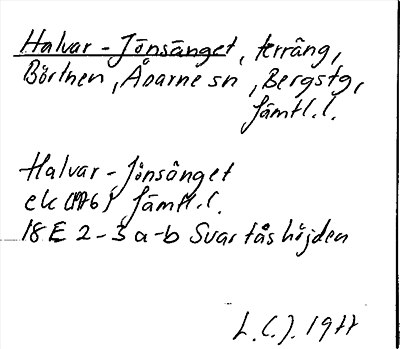 Halvar-Jönsänget, terräng,
Börtnen, Åsarne sn, Bergstg,
Jämtl.l.
Halvar-Jönsänget
ek (1976) Jämtl.l.
18E 2-3 a-b Svartåshöjden
L.C.J. 1977